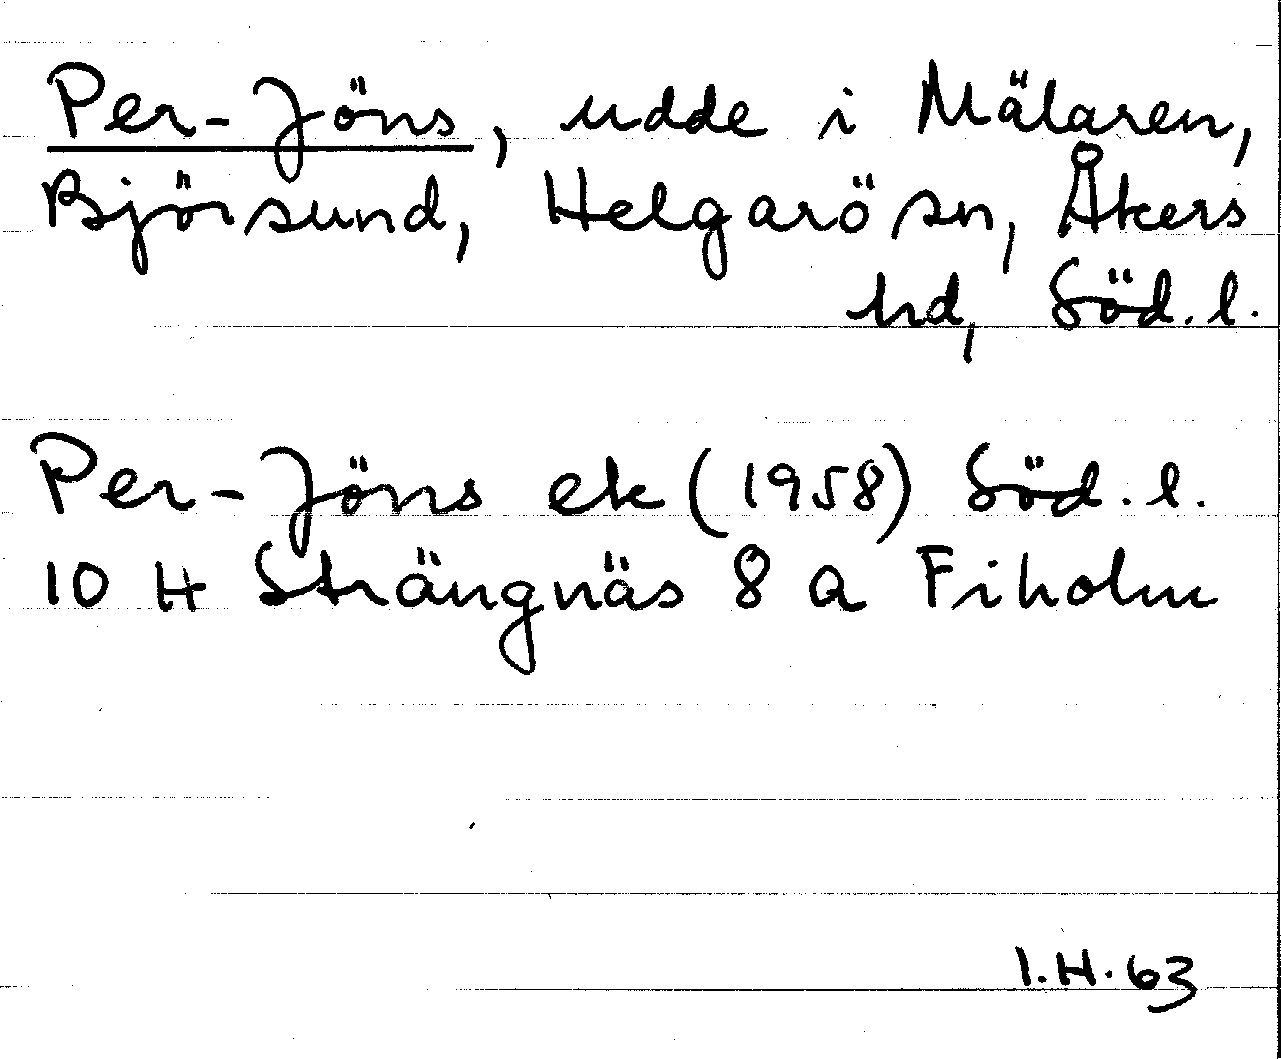 Per-Jöns, udde i Mälaren,
Björsund, Helgarö sn, Åkers
hd, Söd. l.
Per-Jöns ek (1958) Söd. l.
10 H Strängnäs 8 a Fiholm
I.H. 63